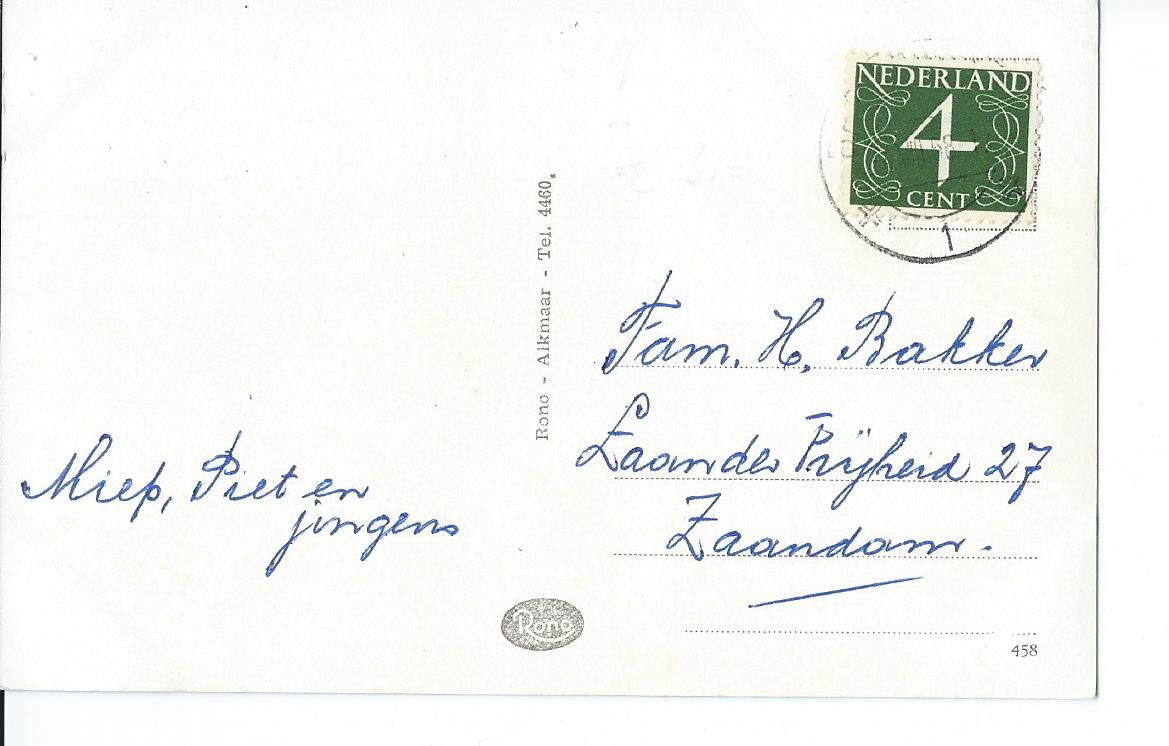 NEDERLAND
4
CENT
1
Rono - Alkmaar - Tel. 4460.
Fam. H. Bakker
Zaander 27
Zaandam.
Miep, Piet en
jongens
Rono
458